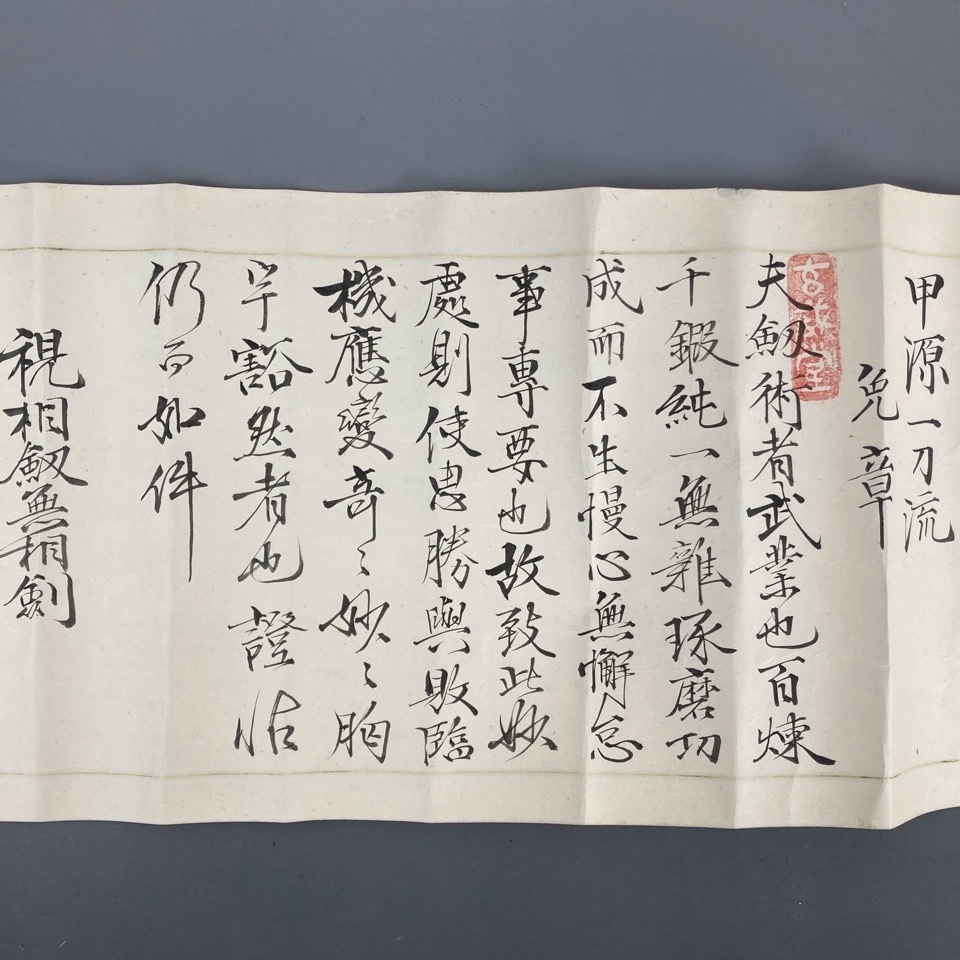 甲源一刀流
免章
夫劔術者武業也百煉
千鍛純一無雜琢磨功
成而不生慢心無懈怠
事專要也故致此妙
處則使忠勝與敗臨
機應變奇〻妙〻胸
宇豁然者也證
仍而如件
視相劔無相劍